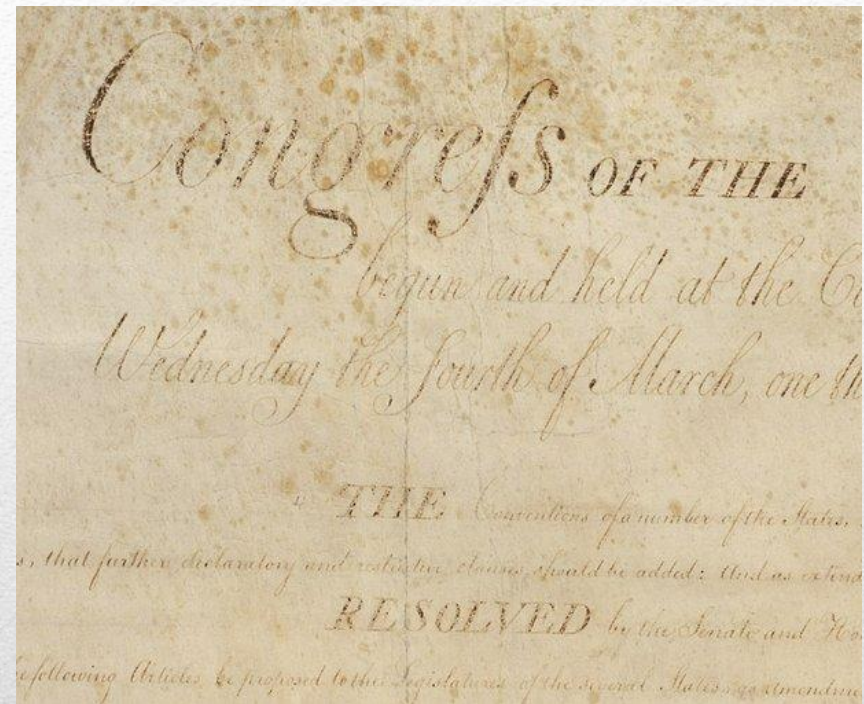 Congreſs OF THE
begun and held at the Ci
Wednesday the fourth of March, one th
THE Conventions of a number of the States,
s, that further declaratory and restrictive clauses should be added: And as extend
RESOLVED by the Senate and Ho
he following Articles be proposed to the Legislatures of the several States, as amendme